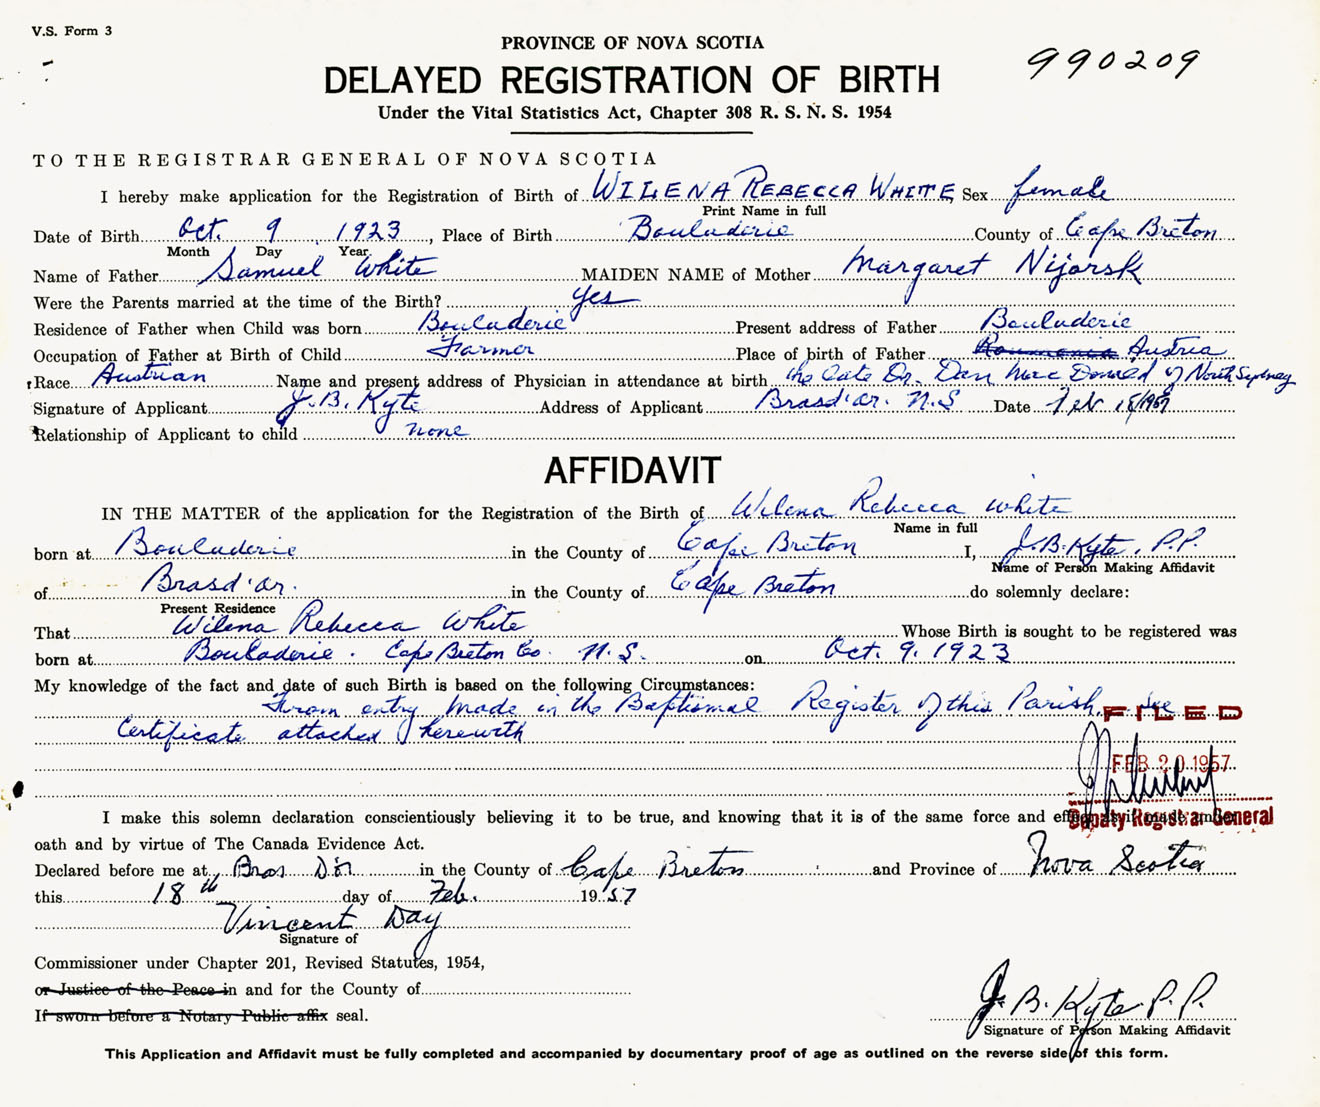 V.S. Form 3
PROVINCE OF NOVA SCOTIA
990209
DELAYED REGISTRATION OF BIRTH
Under the Vital Statistics Act, Chapter 308 R. S. N. S. 1954
TO THE REGISTRAR GENERAL OF NOVA SCOTIA
I hereby make application for the Registration of Birth of WILENA REBECCA WHITE Sex female
Print Name in full
Date of Birth Oct. 9 1923, Place of Birth Bouladerie County of Cape Breton
Month Day Year
Name of Father Samuel White MAIDEN NAME of Mother Margaret Nijorsk
Were the Parents married at the time of the Birth? yes
Residence of Father when Child was born Bouladerie Present address of Father Bouladerie
Occupation of Father at Birth of Child Farmer Place of birth of Father Roumania Austria
Race Austrian Name and present address of Physician in attendance at birth the late Dr. Dan MacDonald of North Sydney
Signature of Applicant J.B. Kyte Address of Applicant Brasd'or. N.S Date Feb 18/1957
Relationship of Applicant to child none
AFFIDAVIT
IN THE MATTER of the application for the Registration of the Birth of Wilena Rebecca White
Name in full
born at Bouladerie in the County of Cape Breton I, J.B. Kyte, P.P.
Name of Person Making Affidavit
of Brasd'or. in the County of Cape Breton do solemnly declare:
Present Residence
That Wilena Rebecca White Whose Birth is sought to be registered was
born at Bouladerie. Cape Breton Co. N.S. on Oct. 9. 1923
My knowledge of the fact and date of such Birth is based on the following Circumstances:
From entry made in the Baptismal Register of this Parish, see
Certificate attached herewith
FILED
FEB 20 1957
Deputy Registrar General
I make this solemn declaration conscientiously believing it to be true, and knowing that it is of the same force and effect as if made under
oath and by virtue of The Canada Evidence Act.
Declared before me at Bras D'or in the County of Cape Breton and Province of Nova Scotia
this 18th day of Feb. 1957
Vincent Day
Signature of
Commissioner under Chapter 201, Revised Statutes, 1954,
or Justice of the Peace in and for the County of
If sworn before a Notary Public affix seal.
J. B. Kyte P.P.
Signature of Person Making Affidavit
This Application and Affidavit must be fully completed and accompanied by documentary proof of age as outlined on the reverse side of this form.